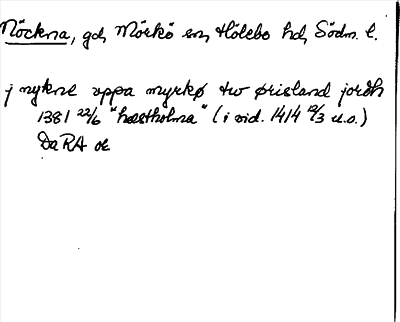 Nöckna, gd, Mörkö sn, Hölebo hd, Södm. l.
j nykne uppa myrkø tw ørisland jordh
1381 22/6 "hæstholma" (i vid. 1414 12/3 u.s.)
Da RA or